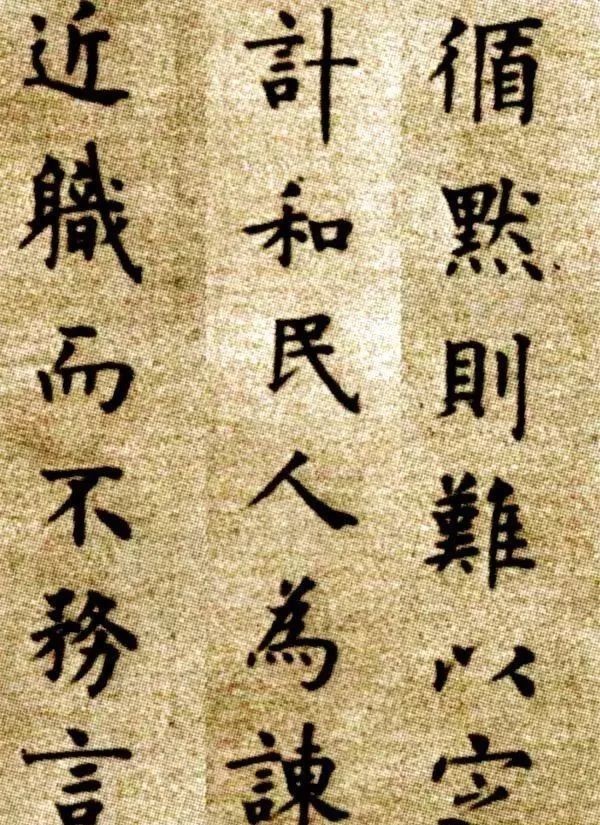 循黙則難以
計和民人為諫
近職而不務言